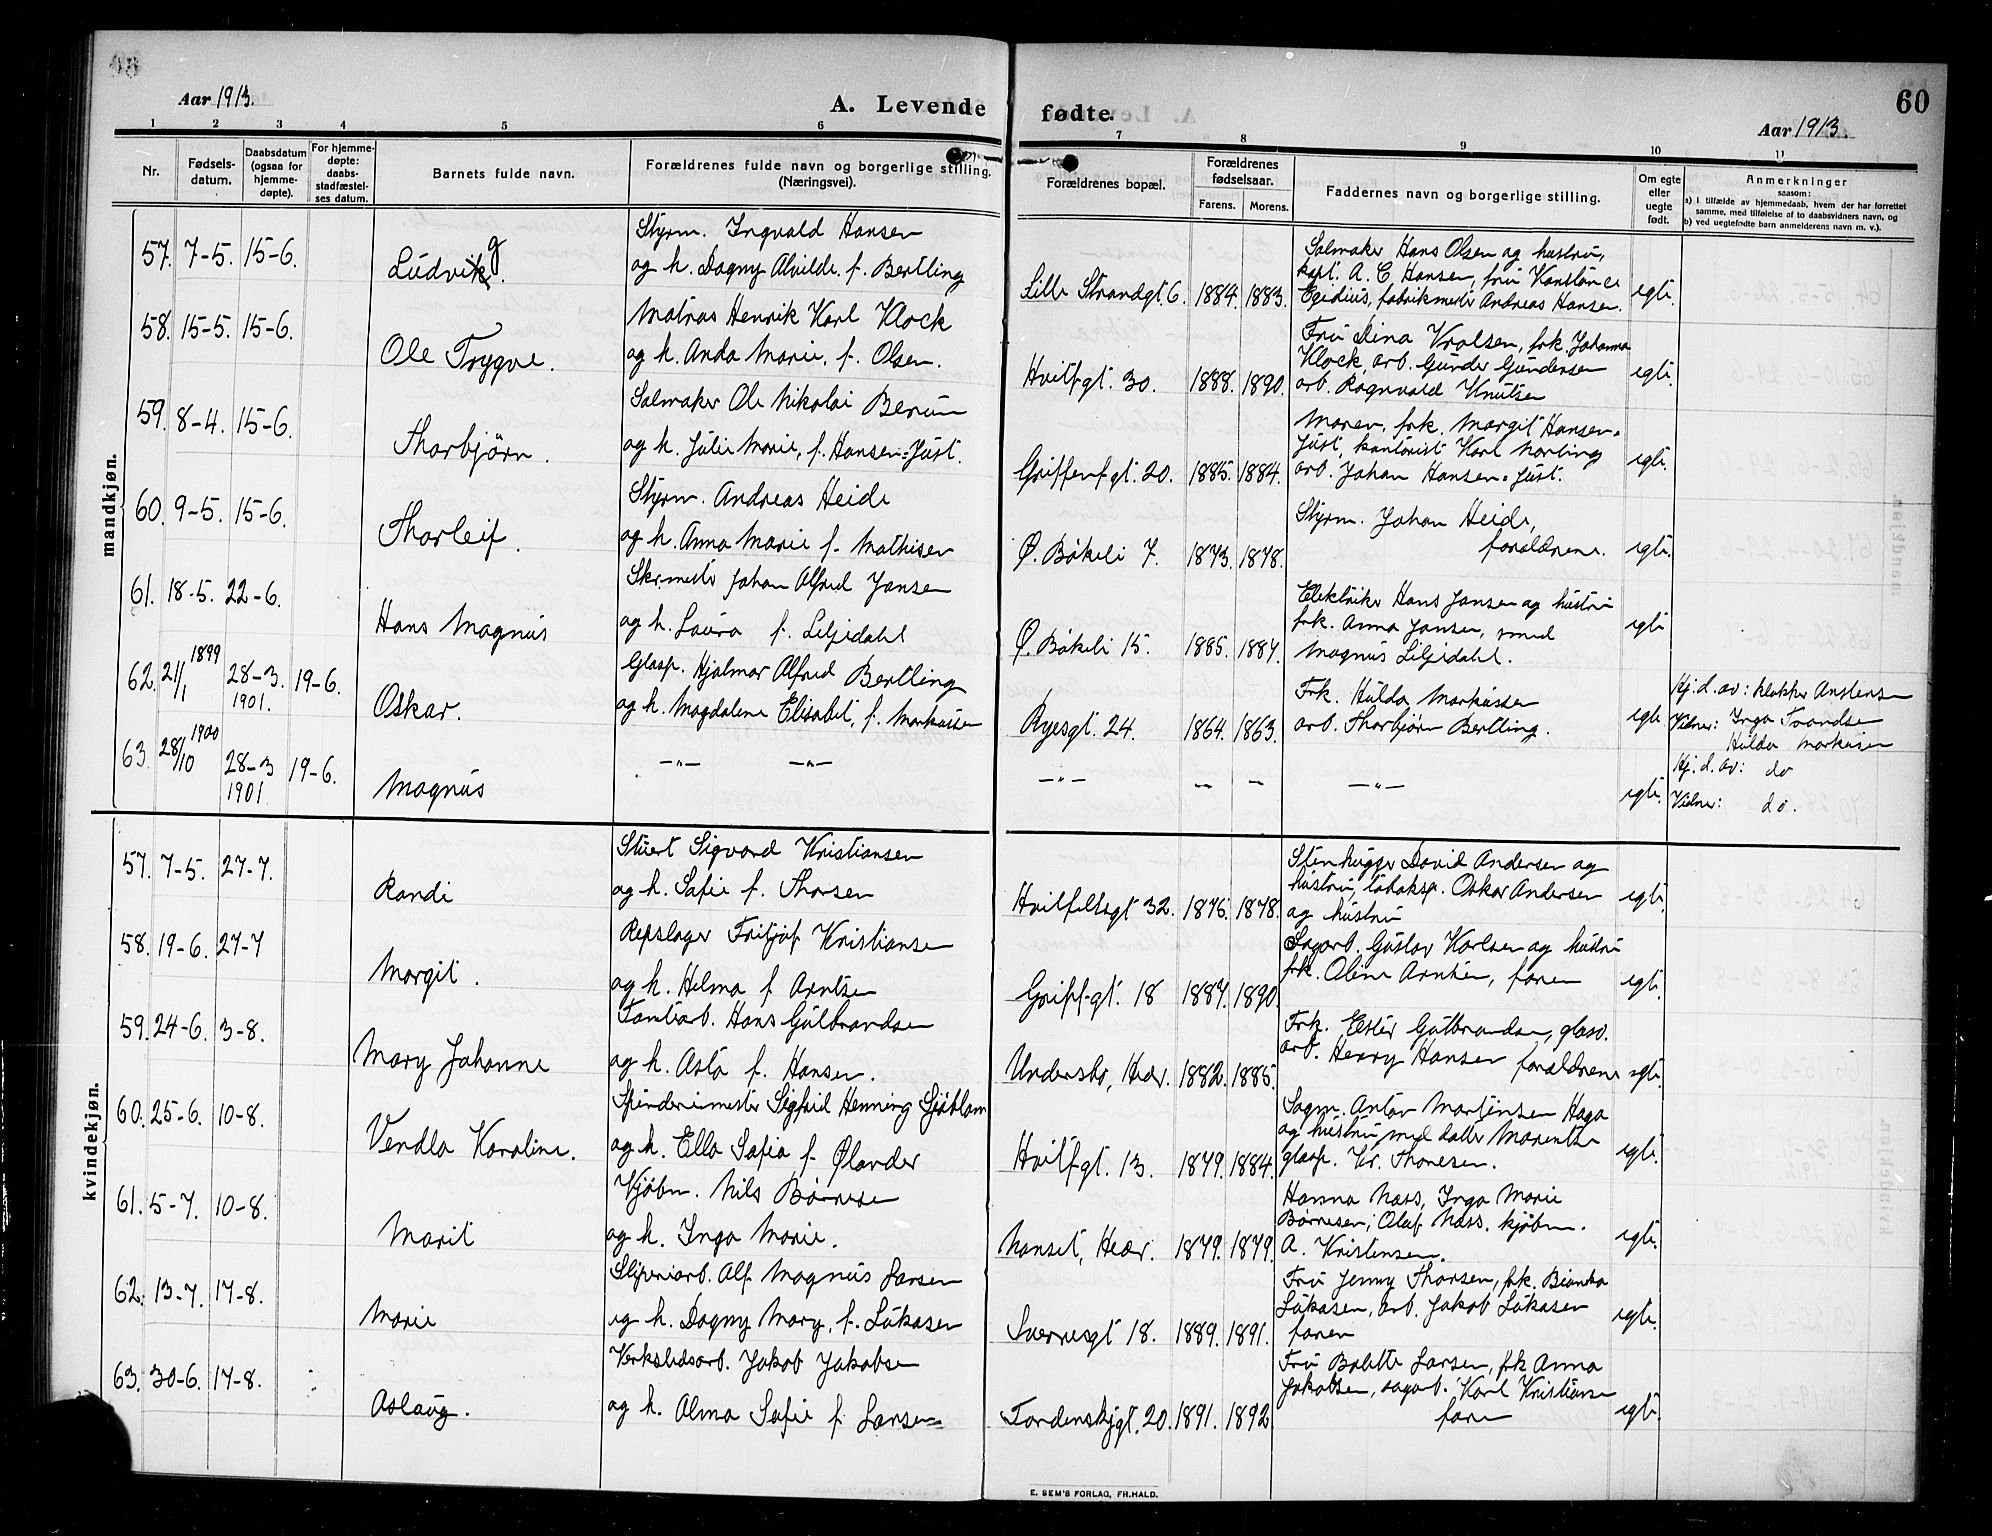 Aar 1913.
A. Levende fødte.
60
Aar 1913.
1 2 3 4 5 6 7 8 9 10 11
Nr.
Fødsels-
datum.
Daabsdatum
(ogsaa for
hjemme-
døpte).
For hjemme-
døpte:
daabs-
stadfæstel-
ses datum.
Barnets fulde navn.
Forældrenes fulde navn og borgerlige stilling.
(Næringsvei).
Forældrenes bopæl.
Forældrenes
fødselsaar.
Farens. Morens.
Faddernes navn og borgerlige stilling.
Om egte
eller
uegte
født.
Anmerkninger
saasom:
a) i tilfælde av hjemmedaab, hvem der har forrettet
samme, med tilføielse af to daabsvidners navn, og
b) ved uegtefødte barn anmelderens navn m. v.).
mandkjøn.
57. 7-5. 15-6.
Ludvikg.
Styrm. Ingvald Hansen
og h. Dagny Alvilde f. Bertling
Lille Strandgt 6. 1884. 1883.
Salmaker Hans Olsen og hustru,
kapt. A. C Hansen, fru Konstance
Egedius, fabrikmester Andreas Hansen.
egte.
58. 15-5. 15-6.
Ole Trygve.
Matros Henrik Karl Klock
og h. Anda Marie, f. Olsen.
Hvitfgt. 30. 1888. 1890.
Fru Dina Vralsen, frk. Johanna
Klock, arb. Gunder Gundersen
arb. Ragnvald Knutsen
egte.
59. 8-4. 15-6.
Thorbjörn.
Salmaker Ole Nikolai Berum
og h. Julie Marie, f. Hansen=Just.
Griffenfgt. 20. 1885. 1884.
Moren, frk. Margit Hansen=
Just, kontorist Karl Norling
arb. Johan Hansen=Just.
egte.
60. 9-5. 15-6.
Thorleif.
Styrm. Andreas Heide
og h. Anna Marie f. Mathisen
Ø. Bökeli 7. 1873. 1878.
Styrm. Johan Heide,
forældrene.
egte.
61. 18-5. 22-6.
Hans Magnus
Skr.mester Johan Alfred Jansen
og h. Laura f. Liljedahl
Ø. Bökeli 15. 1885. 1887.
Elektriker Hans Jansen og hustru
frk. Anna Jansen, smed
Magnus Liljedahl.
egte
62. 21/1 1899 28-3. 1901. 19-6.
Oskar.
Glasp. Hjalmar Alfred Bertling
og h. Magdalene Elisabet, f. Markussen
Ryesgt. 24. 1864. 1863.
Frk. Hulda Markussen
arb. Thorbjörn Bertling.
egte
Hj. d. av: klokker Anstensen
Vidner: Inga Tvandsen
Hulda Markusen
63. 28/10 1900 28-3 1901. 19-6.
Magnus
—"— —"—
—"— — —
—"—
egte.
Hj. d. av: do
Vidner: do.
kvindekjøn.
57. 7-5. 27-7.
Randi
Stuert Sigvard Kristiansen
og h. Sofie f. Thorsen
Hvitfeltsgt 32. 1876. 1878.
Stenhugger David Andersen og
hustru, tobaksp. Oskar Andersen
og hustru
egte.
58. 19-6. 27-7
Margit.
Repslager Fritjof Kristiansen
og h. Helma f Arntsen
Griffgt. 18 1887. 1890.
Sagarb. Gustav Karlsen og hustru
frk. Oline Arntsen, faren
egte.
59. 24-6. 3-8.
Mary Johanne
Tomtearb. Hans Gulbrandsen
og h. Asta f. Hansen.
Undersbo, Hedr. 1882. 1885.
Frk. Ester Gulbrandsen, glasv.
arb. Henry Hansen forældrene
egte.
60. 25-6. 10-8.
Vendla Karoline.
Spinderimester Sigfrid Henning Sjöblom
og h. Ella Sofia f. Ölander
Hvitfgt. 13. 1879. 1884.
Sagm. Anton Martinsen Haga
og hustru med datter Marenthe
glasp. Kr. Thonesen.
egte.
61. 5-7. 10-8.
Marit
Kjöbm. Nils Börresen
og h. Inga Marie.
Nanset, Hedr. 1879. 1879.
Hanna Næss, Inga Marie
Börresen, Olaf Næss. kjöbm.
A. Kristensen.
egte.
62. 13-7. 17-8.
Marie
Sliperiarb. Alf Magnus Larsen
og h. Dagny Mary, f. Lukasen
Sverresgt 18. 1889. 1891.
Fru Jenny Thorsen, frk. Bianka
Lukasen, arb. Jakob Lukasen
faren
egte.
63. 30-6. 17-8.
Aslaug.
Verkstedsarb. Jakob Jakobsen
og h. Alma Sofie f. Larsen
Tordenskjgt. 20. 1891. 1892
Fru Bolette Larsen, frk Anna
Jakobsen, sagarb. Karl Kristiansen
faren
egte.
E. SEM'S FORLAG, FR.HALD.